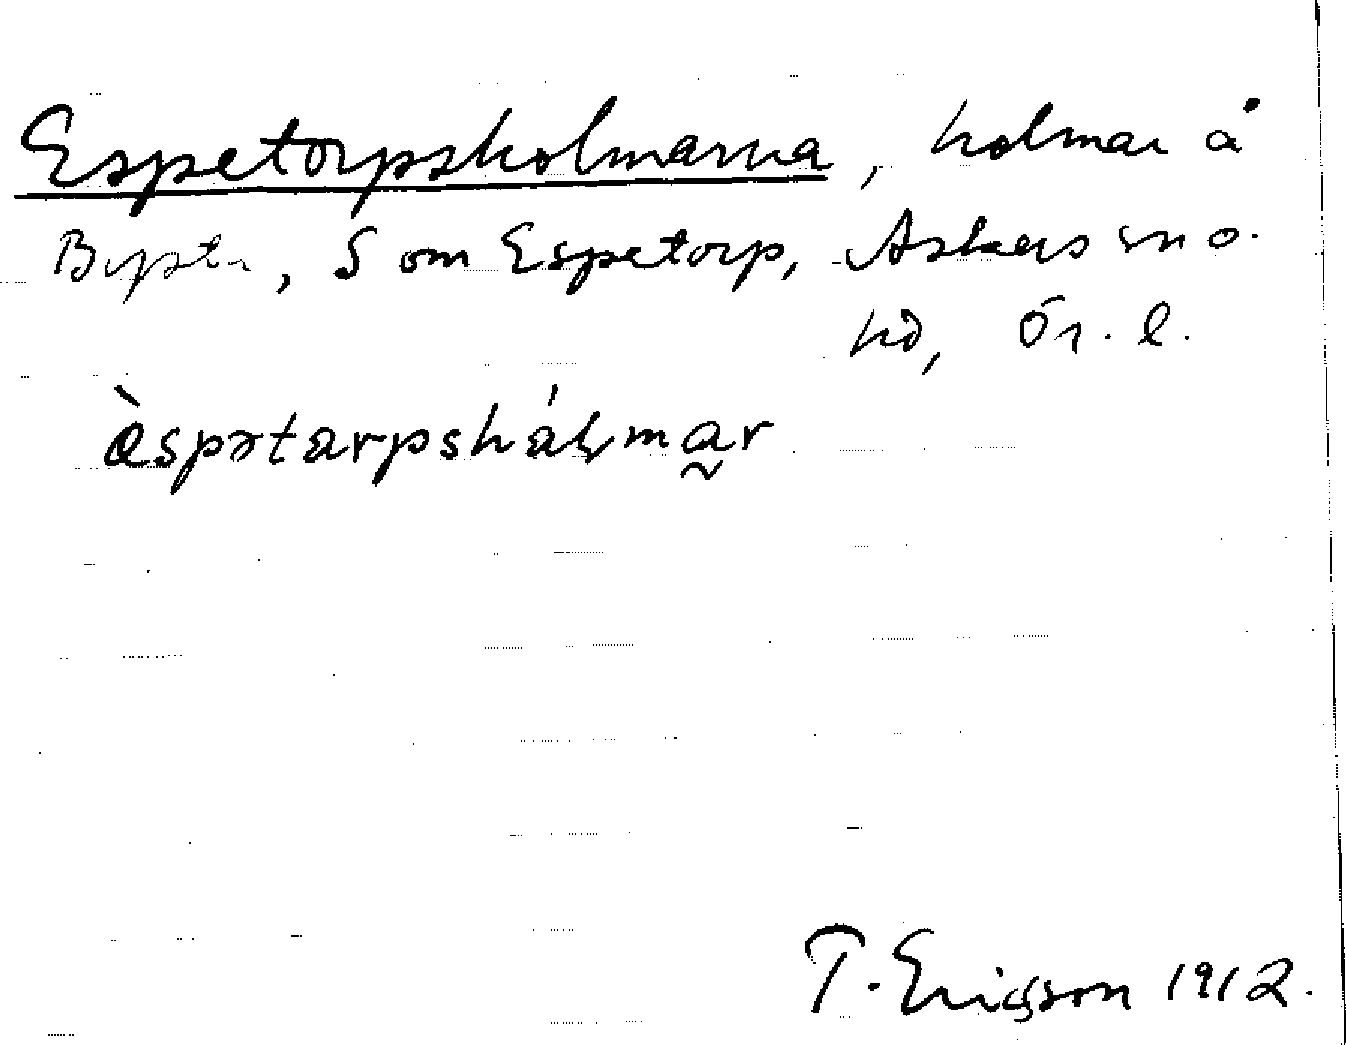 Espetorpsholmarna, holmar å
Bysta, S om Espetorp, Askers sn o.
hd, Ör. l.
àspətarpshálmar
T. Ericsson 1912.